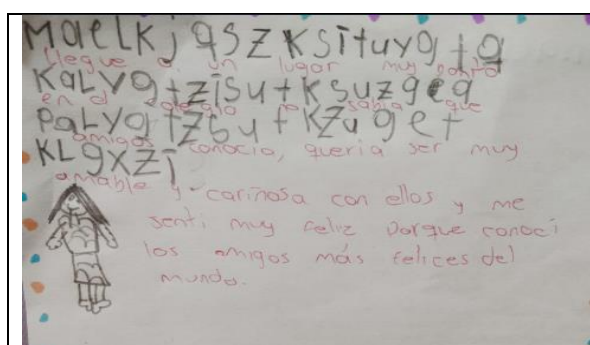 MaeLKjgSZKSītuyg+g
llegue a un lugar muy bonito
KaLYg+zīSu+KSuzgeg
en el colegio no sabia que
PaLYg+Zbu+KZuge+
amigos conocio, queria ser muy
KLgxZj
amable y cariñosa con ellos y me
senti muy feliz porque conocí
los amigos más felices del
mundo.